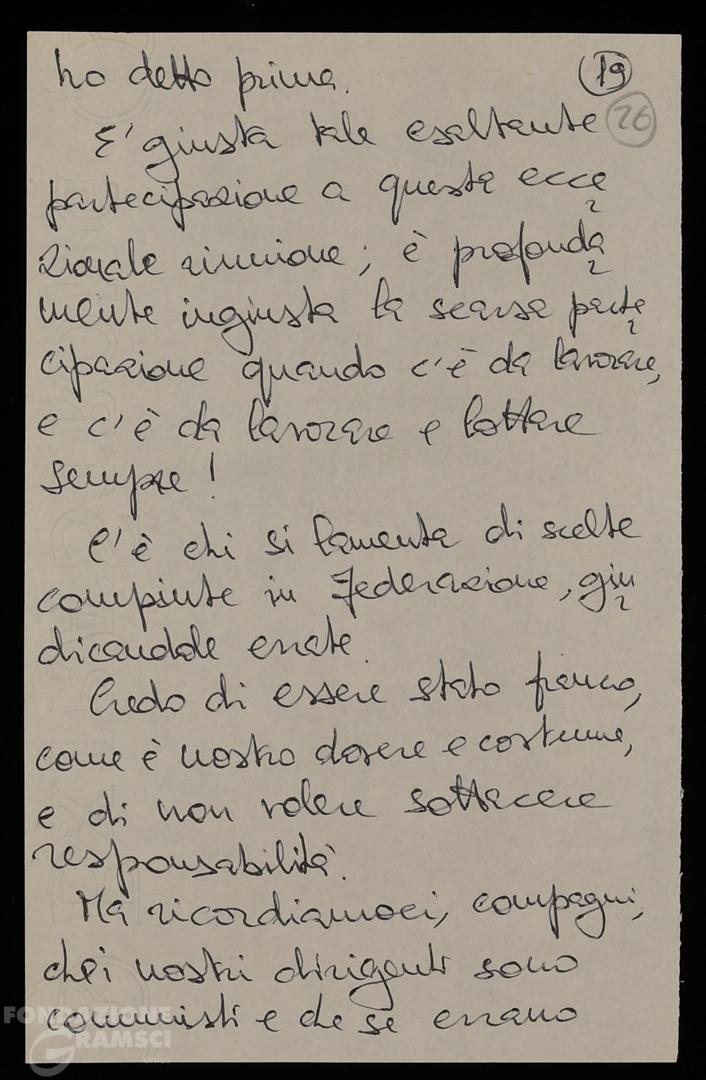 19
26
ho detto prima.
E' giusta tale esaltante
partecipazione a questa ecce
zionale riunione; è profonda
mente ingiusta la scarsa parte
cipazione quando c'è da lavorare,
e c'è da lavorare e lottare
sempre!
C'è chi si lamenta di scelte
compiute in Federazione, giu
dicandole errate.
Credo di essere stato franco,
come è nostro dovere e costume,
e di non volere sottacere
responsabilità.
Ma ricordiamoci, compagni,
che i nostri dirigenti sono
comunisti e che se errano
FONDAZIONE
GRAMSCI
onlus